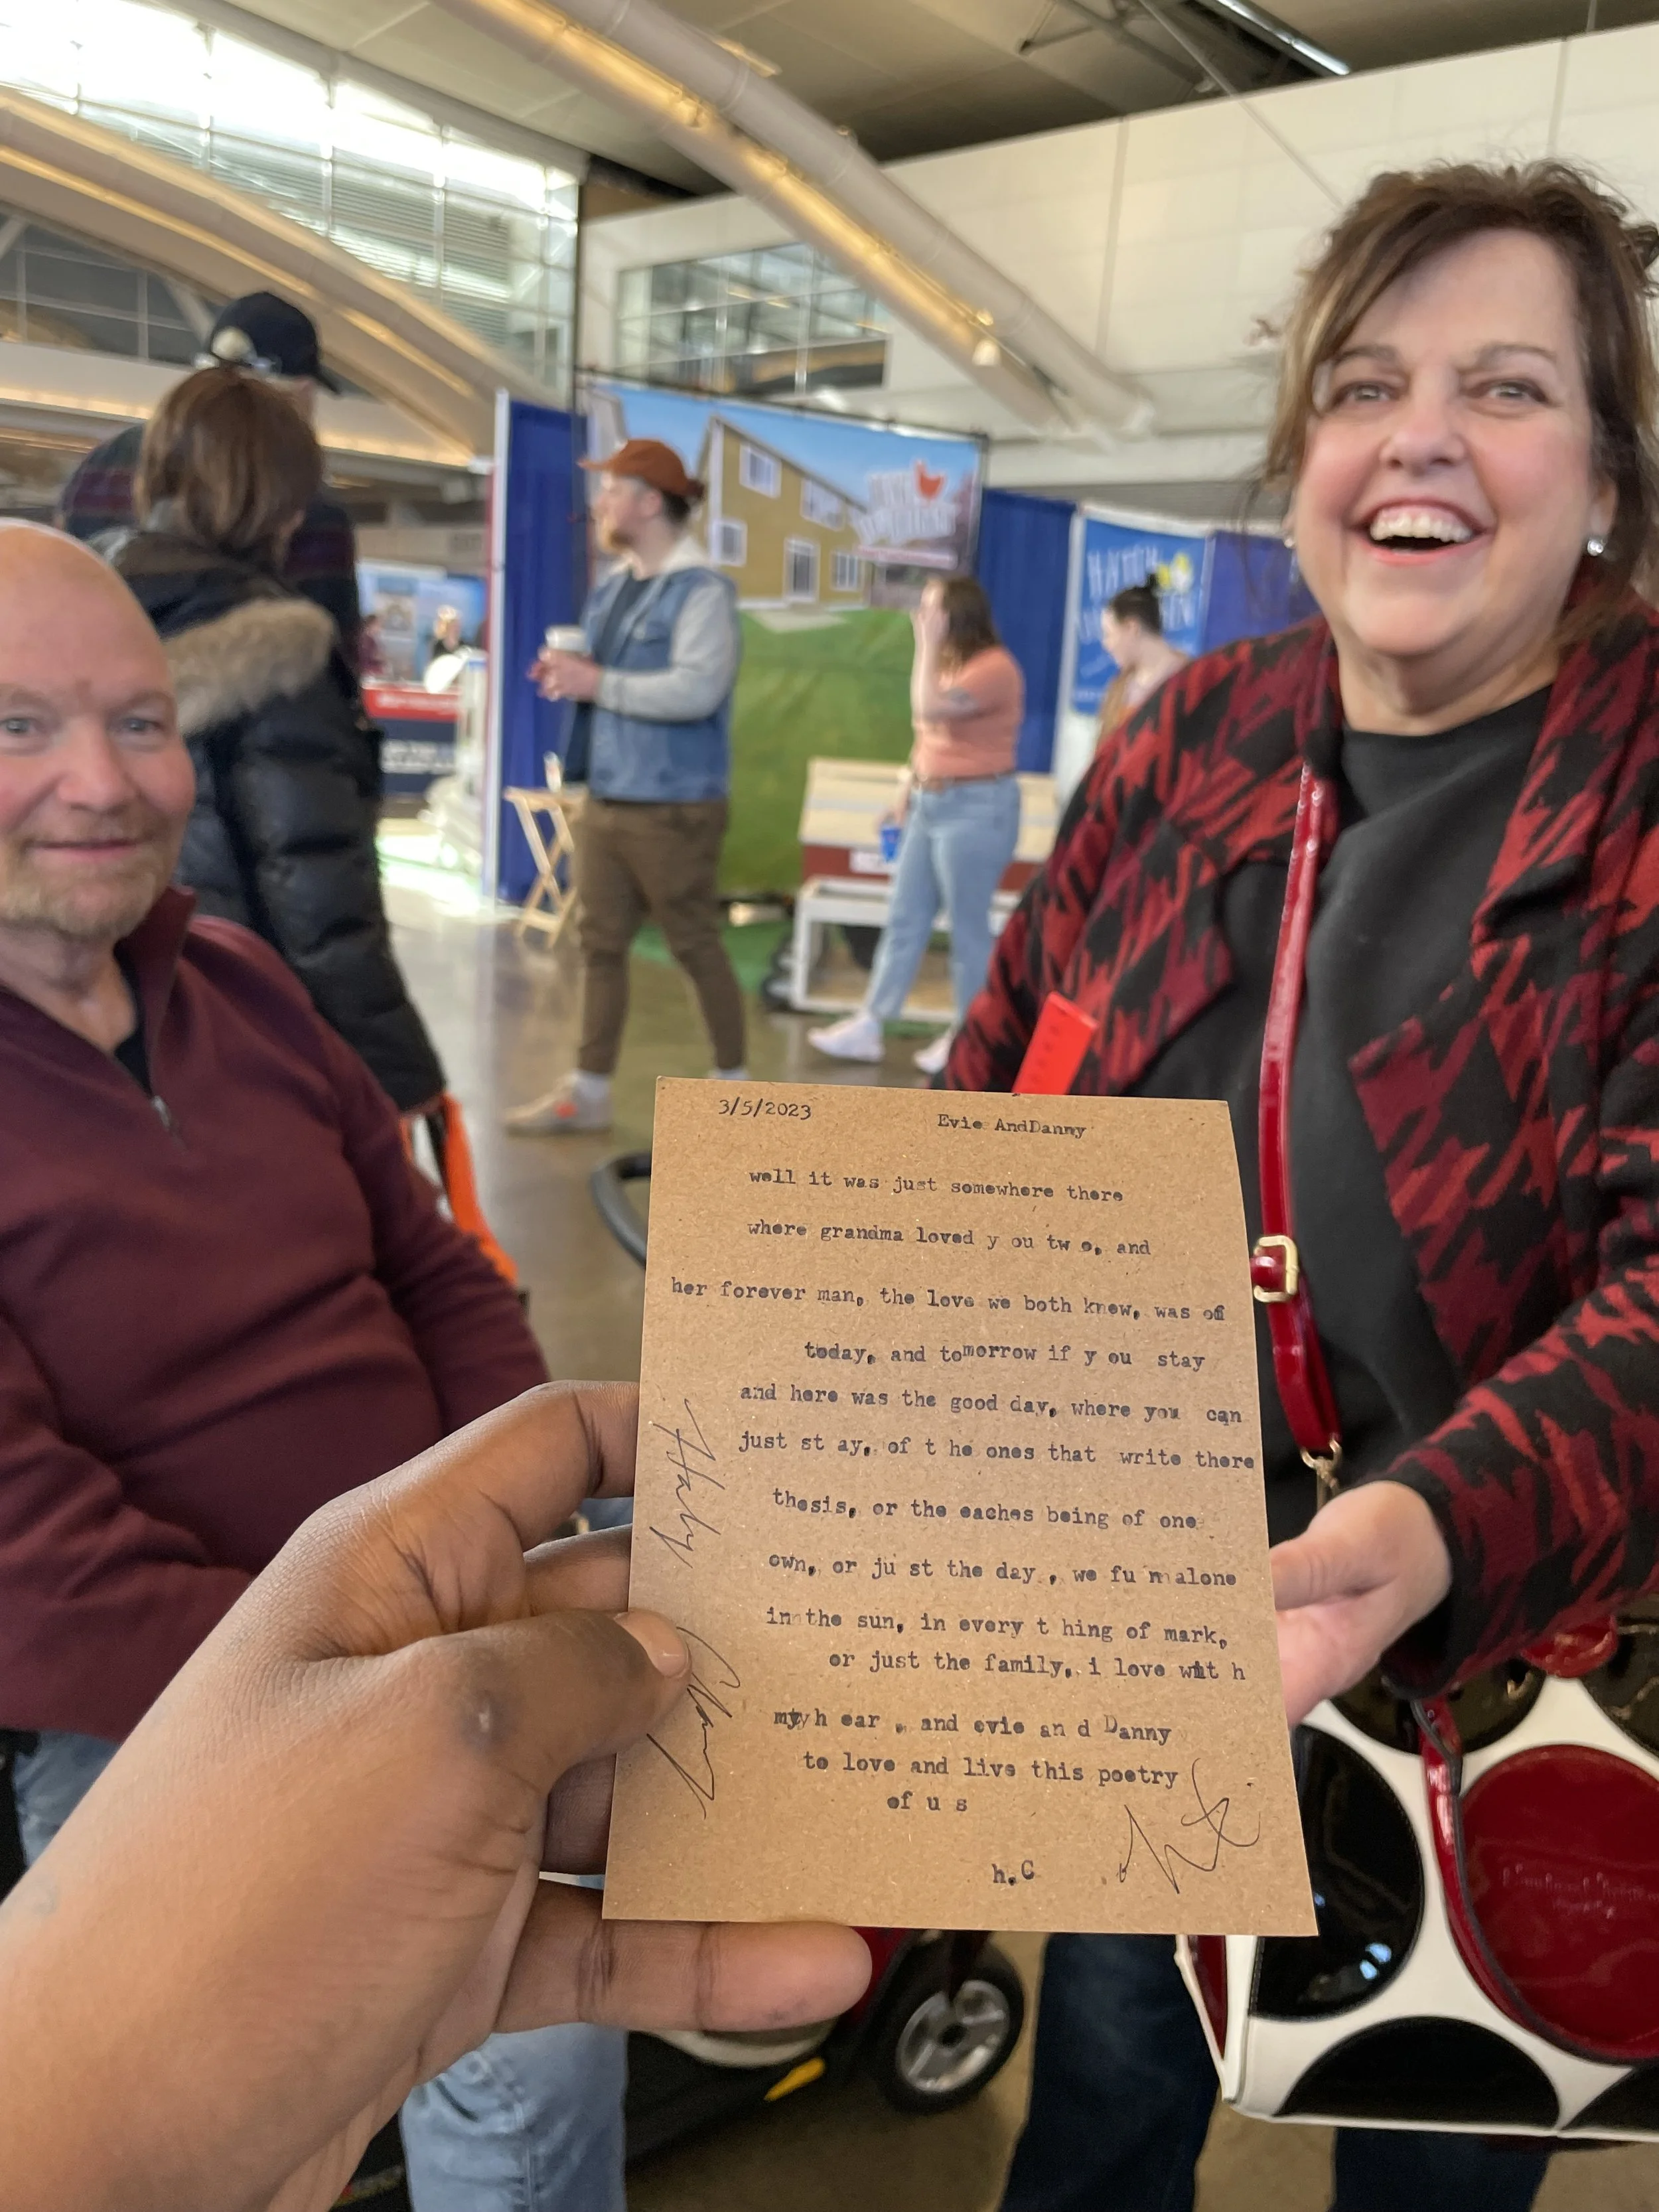 3/5/2023
Evie AndDanny
well it was just somewhere there
where grandma loved y ou tw o, and
her forever man, the love we both knew, was of
today, and tomorrow if y ou stay
and here was the good day, where you can
just st ay, of t he ones that write there
thesis, or the eaches being of one
own, or ju st the day , we fu n alone
in the sun, in every t hing of mark,
or just the family, i love wit h
my h ear , and evie an d Danny
to love and live this poetry
of u s
h.C